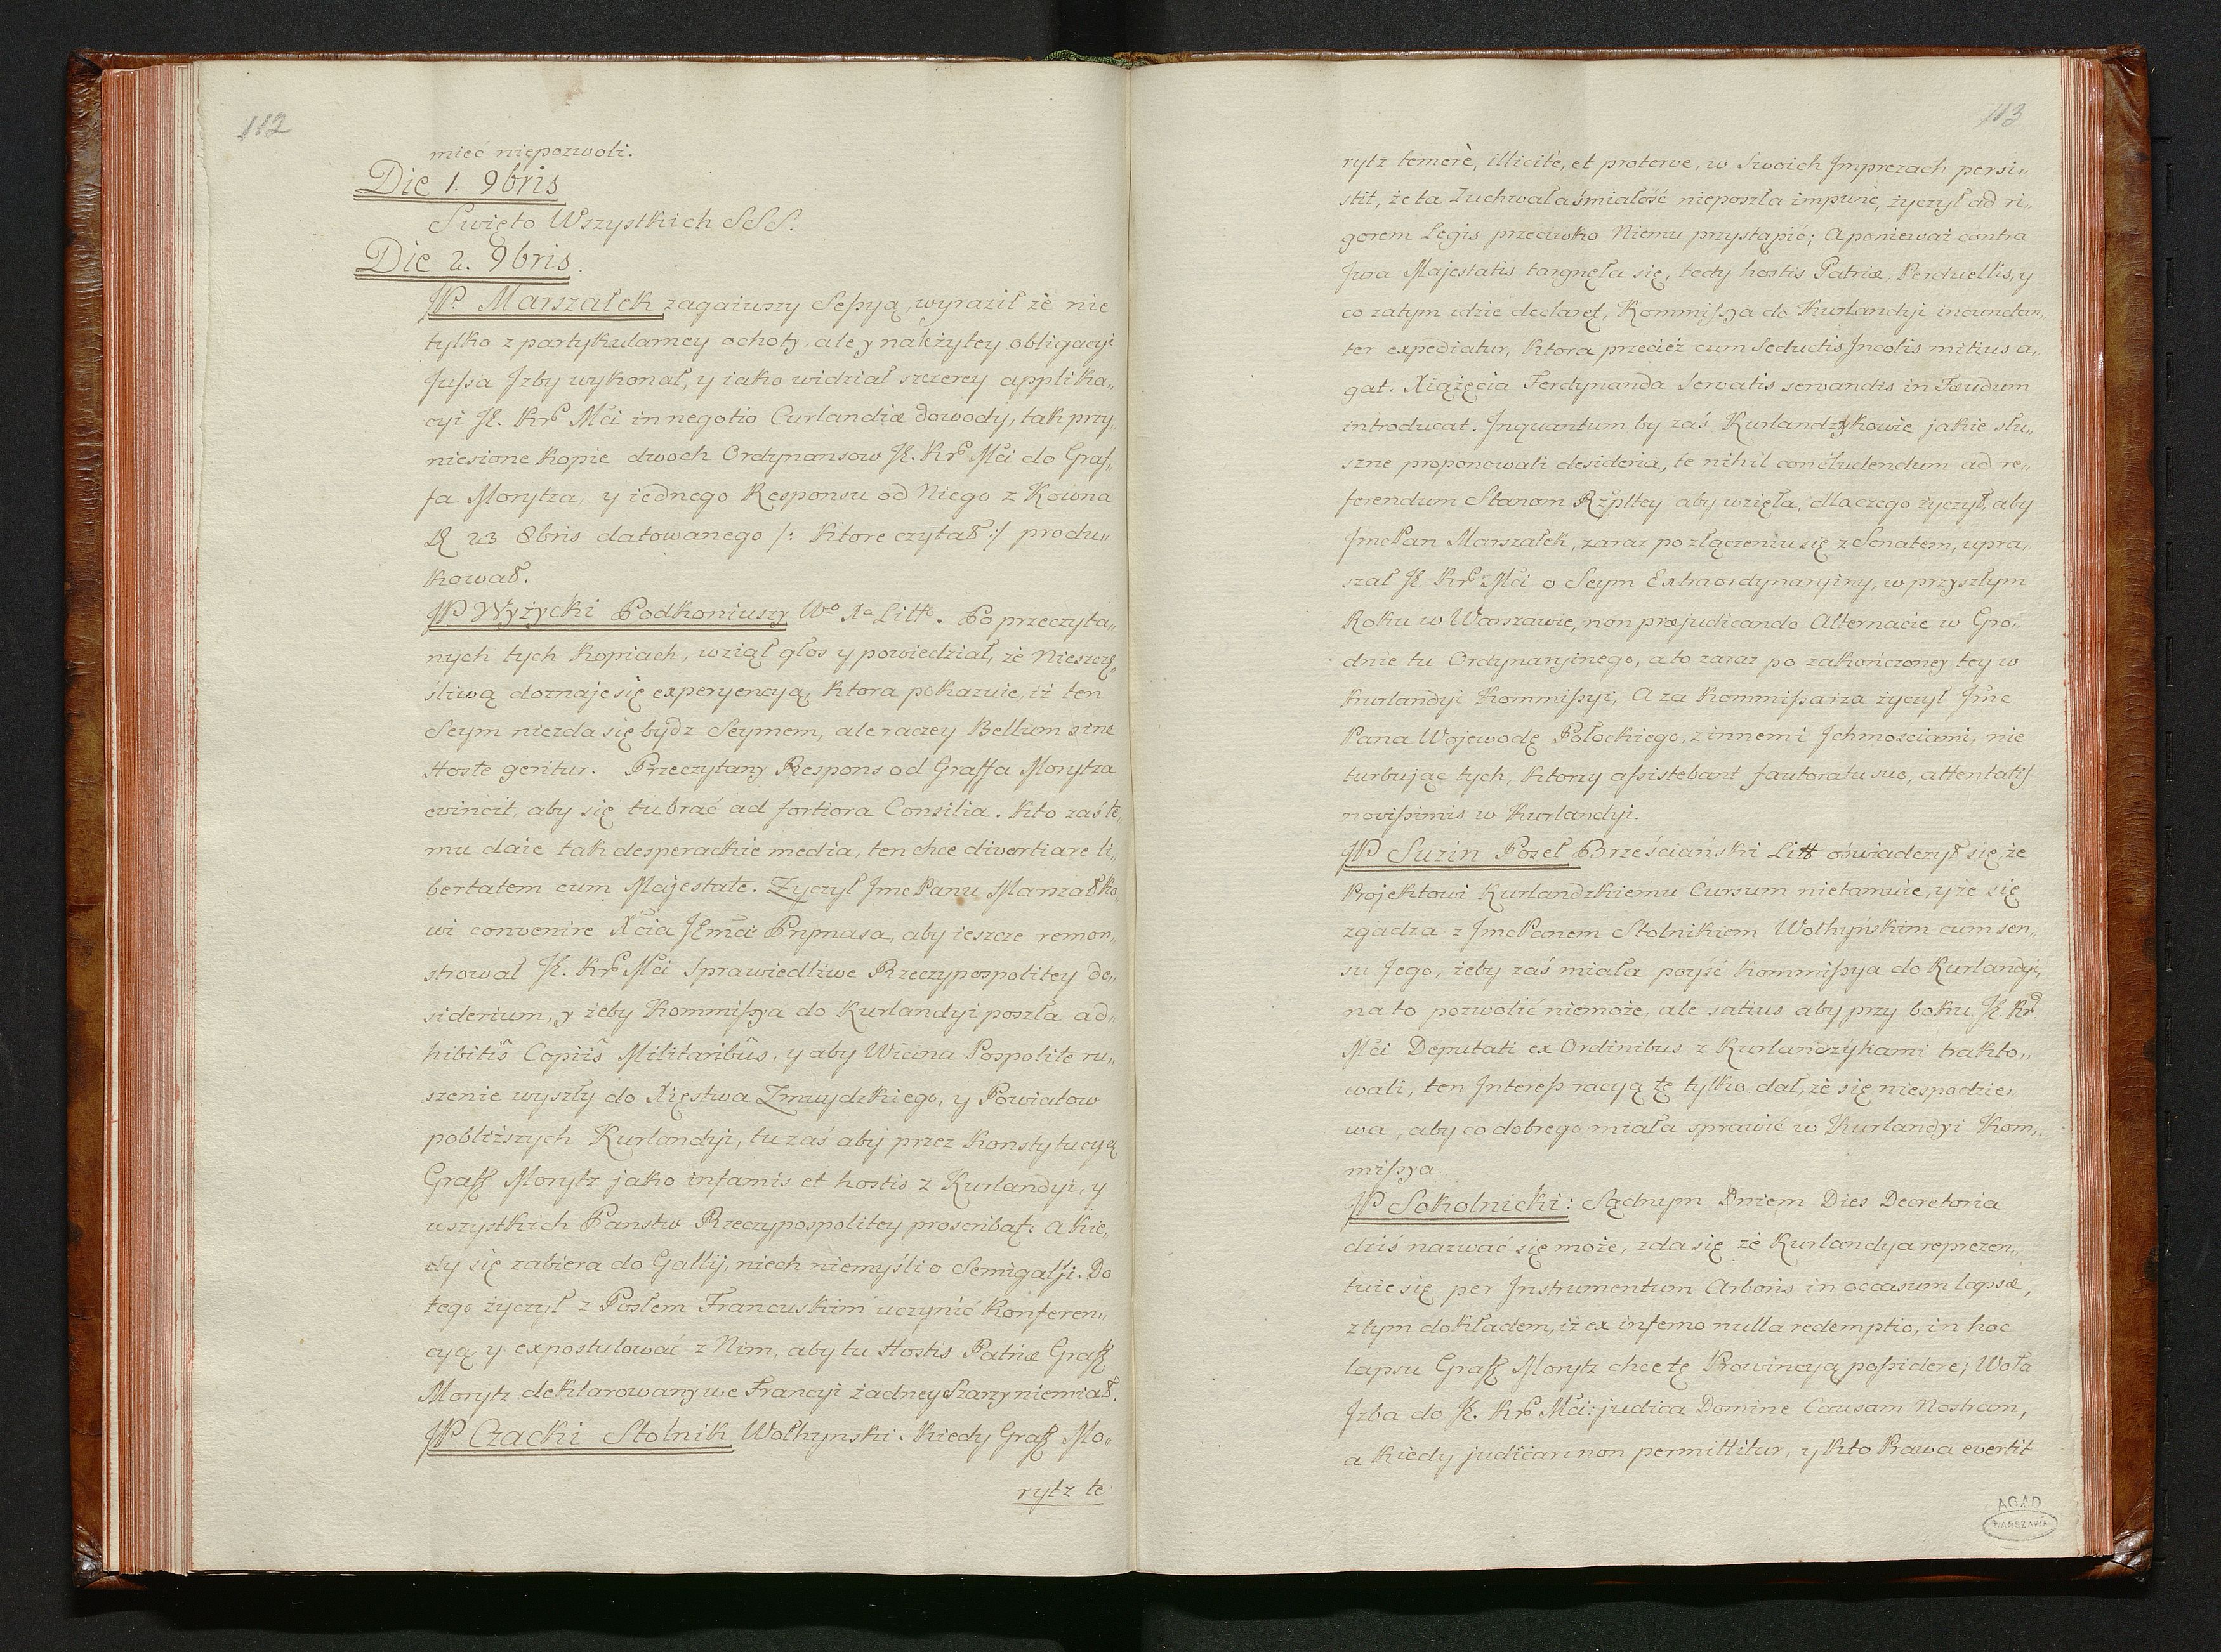 112
mieć niepozwoli.
Die 1. 9bris
Swięto Wszystkich SSS.
Die 2. 9bris.
JP. Marszałek zagaiwszy Seſsyą, wyraził że nie
tylko z partykularney ochoty, ale y należytey obligacyi
Juſsa Jzby wykonał, y iako widział szczerey applika„
cyi JK. Kr Mći in negotio Curlandiæ dowody, tak przy„
niesione kopie dwoch Ordynansow JK. Kr Mći do Graf„
fa Morytza, y iednego Responsu od Niego z Kowna
D 23 8bris datowanego /: ktore czytał :/ produ„
kował.
JP Wyżycki Podkoniuszy Wo Xa Litt. Po przeczyta„
nych tych kopiach, wziął głos y powiedział, że Nieszczę„
śliwą doznaje się experyencyą, ktora pokazuie, iż ten
Seym niezda się bydz Seymem, ale raczey Bellum sine
Hoste geritur. Przeczytany Respons od Graffa Morytza
evincit, aby się tu brać ad fortiora Consilia. Kto zaś te„
mu daie tak desperackie media, ten chce divertiare li„
bertatem cum Majestate. Zyczył Jmc Panu Marszałko„
wi convenire Xcia JEmći Prymasa, aby ieszcze remon„
strował JK. Kr Mći Sprawiedliwe Rzeczypospolitey de„
siderium, y żeby Kommiſsya do Kurlandyi poszła ad„
hibitis Copiis Militaribus, y aby Wicina Pospolite ru„
szenie wyszły do Xięstwa Zmuydzkiego, y Powiatow
pobliższych Kurlandyi, tu zaś aby przez Konstytucyą
Graff Morytz jako infamis et hostis z Kurlandyi, y
wszystkich Panstw Rzeczypospolitey proscribat: A kie„
dy się zabiera do Gallij, niech niemyśli o Semigalji. Do
tego życzył z Posłem Francuskim uczynić Konferen„
cyą y expostulować z Nim, aby tu Hostis Patriæ Graff
Morytz deklarowany we Francyi żadney Szarzy niemiał.
JP Czacki Stolnik Wołhynski. Kiedy Graff Mo„
rytz te
113
rytz temerè, illicitè, et proterve, w Swoich Jmprezach persi„
stit, że ta Zuchwała śmiałość nieposzła impune, życzył ad ri„
gorem Legis przeciwko Niemu przystąpić; A ponieważ contra
Jura Majestatis targnęła się, tedy hostis Patriæ, Perduellis, y
co zatym idzie declaret, Kommiſsya do Kurlandyi incunctan„
ter expediatur, ktora przecież cum Seductis Jncolis mitius a„
gat. Xiążęcia Ferdynanda Servatis servandis in Fæudum
introducat. Jnquantum by zaś Kurlandzykowie jakie słu„
szne proponowali desideria, te nihil concludendum ad re„
ferendum Stanom Rzpltey aby wzięła, dlaczego życzył, aby
Jmc Pan Marszałek, zaraz po złączeniu się z Senatem, upra„
szał JK. Kr Mći o Seym Extraordynaryiny, w przyszłym
Roku w Warszawie, non præjudicando Alternacie w Gro„
dnie tu Ordynaryinego, a to zaraz po zakończoney tey w
Kurlandyi Kommiſsyi, A za Kommiſsarza życzył Jmc
Pana Wojewodę Połockiego, z innemi Jchmosciami, nie
turbując tych, ktorzy aſsistebant fautoratu suo, attentatis
noviſsimis w Kurlandyi.
JP Suzin Poseł Brześciański Litt oświadczył się, że
Projektowi Kurlandzkiemu Cursum nietamuie, y że się
zgadza z Jmc Panem Stolnikiem Wołhyńskim cum sen„
su Jego, żeby zaś miała poyść Kommiſsya do Kurlandyi,
na to pozwolić niemoże, ale satius aby przy boku JK. Kr.
Mći Deputati ex Ordinibus z Kurlandzykami trakto„
wali, ten Jntereſs racyą tę tylko dał, że się niespodzie„
wa, aby co dobrego miała sprawić w Kurlandyi Kom„
miſsya.
JP Sokolnicki: Sądnym Dniem Dies Decretoria
dziś nazwać się może, zda się że Kurlandya reprezen„
tuie się per Jnstrumentum Arboris in occasum lapsæ,
z tym dokładem, iż ex inferno nulla redemptio, in hoc
lapsu Graff Morytz chce tę Prowincyą poſsidere; Woła
Jzba do JK. Kr Mći: judica Domine Causam Nostram,
a kiedy judicari non permittitur, y kto Prawa evertit
AGAD
WARSZAWA